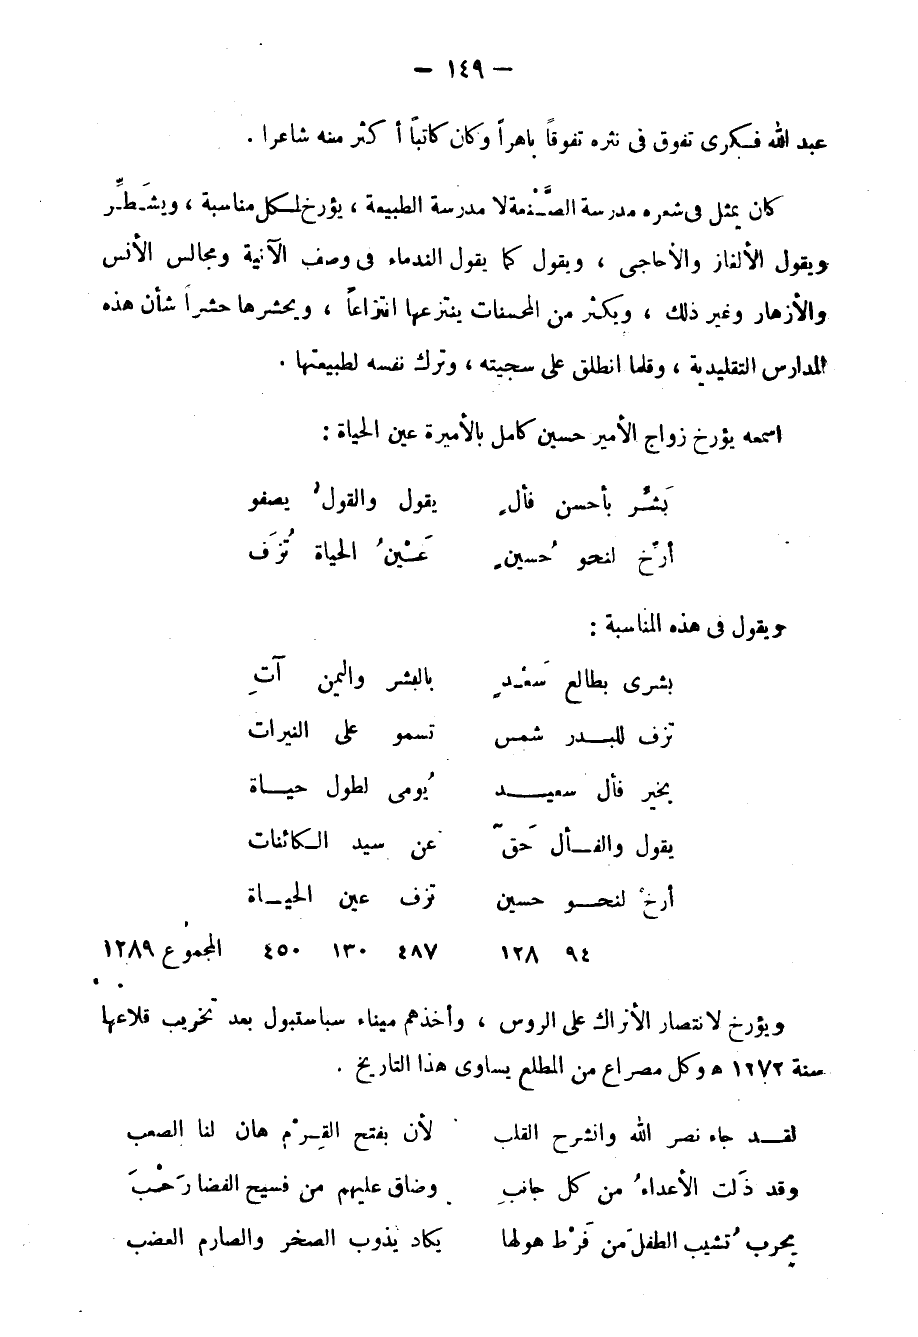 — ١٤٩ —
عبد الله فكرى تفوق فى نثره تفوقاً باهراً وكان كاتباً أكثر منه شاعرا .
كان يمثل فى شعره مدرسة الصَّنْعة لا مدرسة الطبيعة ، يؤرخ لكل مناسبة ، ويشَطِّر
ويقول الألغاز والأحاجى ، ويقول كما يقول الندماء فى وصف الآنية ومجالس الأنس
والأزهار وغير ذلك ، ويكثر من المحسنات ينتزعها انتزاعاً ، ويحشرها حشراً شأن هذه
المدارس التقليدية ، وقلما انطلق على سجيته ، وترك نفسه لطبيعتها .
اسمعه يؤرخ زواج الأمير حسين كامل بالأميرة عين الحياة :
بَشِّر بأحسن فألٍ يقول والقولُ يصفو
أرّخ لنحو حُسينٍ عَيْنُ الحياة تُزَف
ويقول فى هذه المناسبة :
بشرى بطالع سَعْدٍ بالبشر واليمن آتِ
تزف للبدر شمس تسمو على النيرات
بخير فأل سعيد يُومى لطول حياة
يقول والفأل حَقّ عن سيد الكائنات
أرخْ لنحو حسين تزف عين الحياة
٩٤ ١٢٨ ٤٨٧ ١٣٠ ٤٥٠ المجموع ١٢٨٩
ويؤرخ لانتصار الأتراك على الروس ، وأخذهم ميناء سباستبول بعد تخريب قلاعها
سنة ١٢٧٢ ه وكل مصراع من المطلع يساوى هذا التاريخ .
لقد جاء نصر الله وانشرح القلب لأن بفتح القِرْم هان لنا الصعب
وقد ذَلت الأعداءُ من كل جانبِ وضاق عليهم من فسيح الفضا رَحْبَ
بحرب تُشيب الطفلَ من فَرْط هولها يكاد يذوب الصخر والصارم العضب